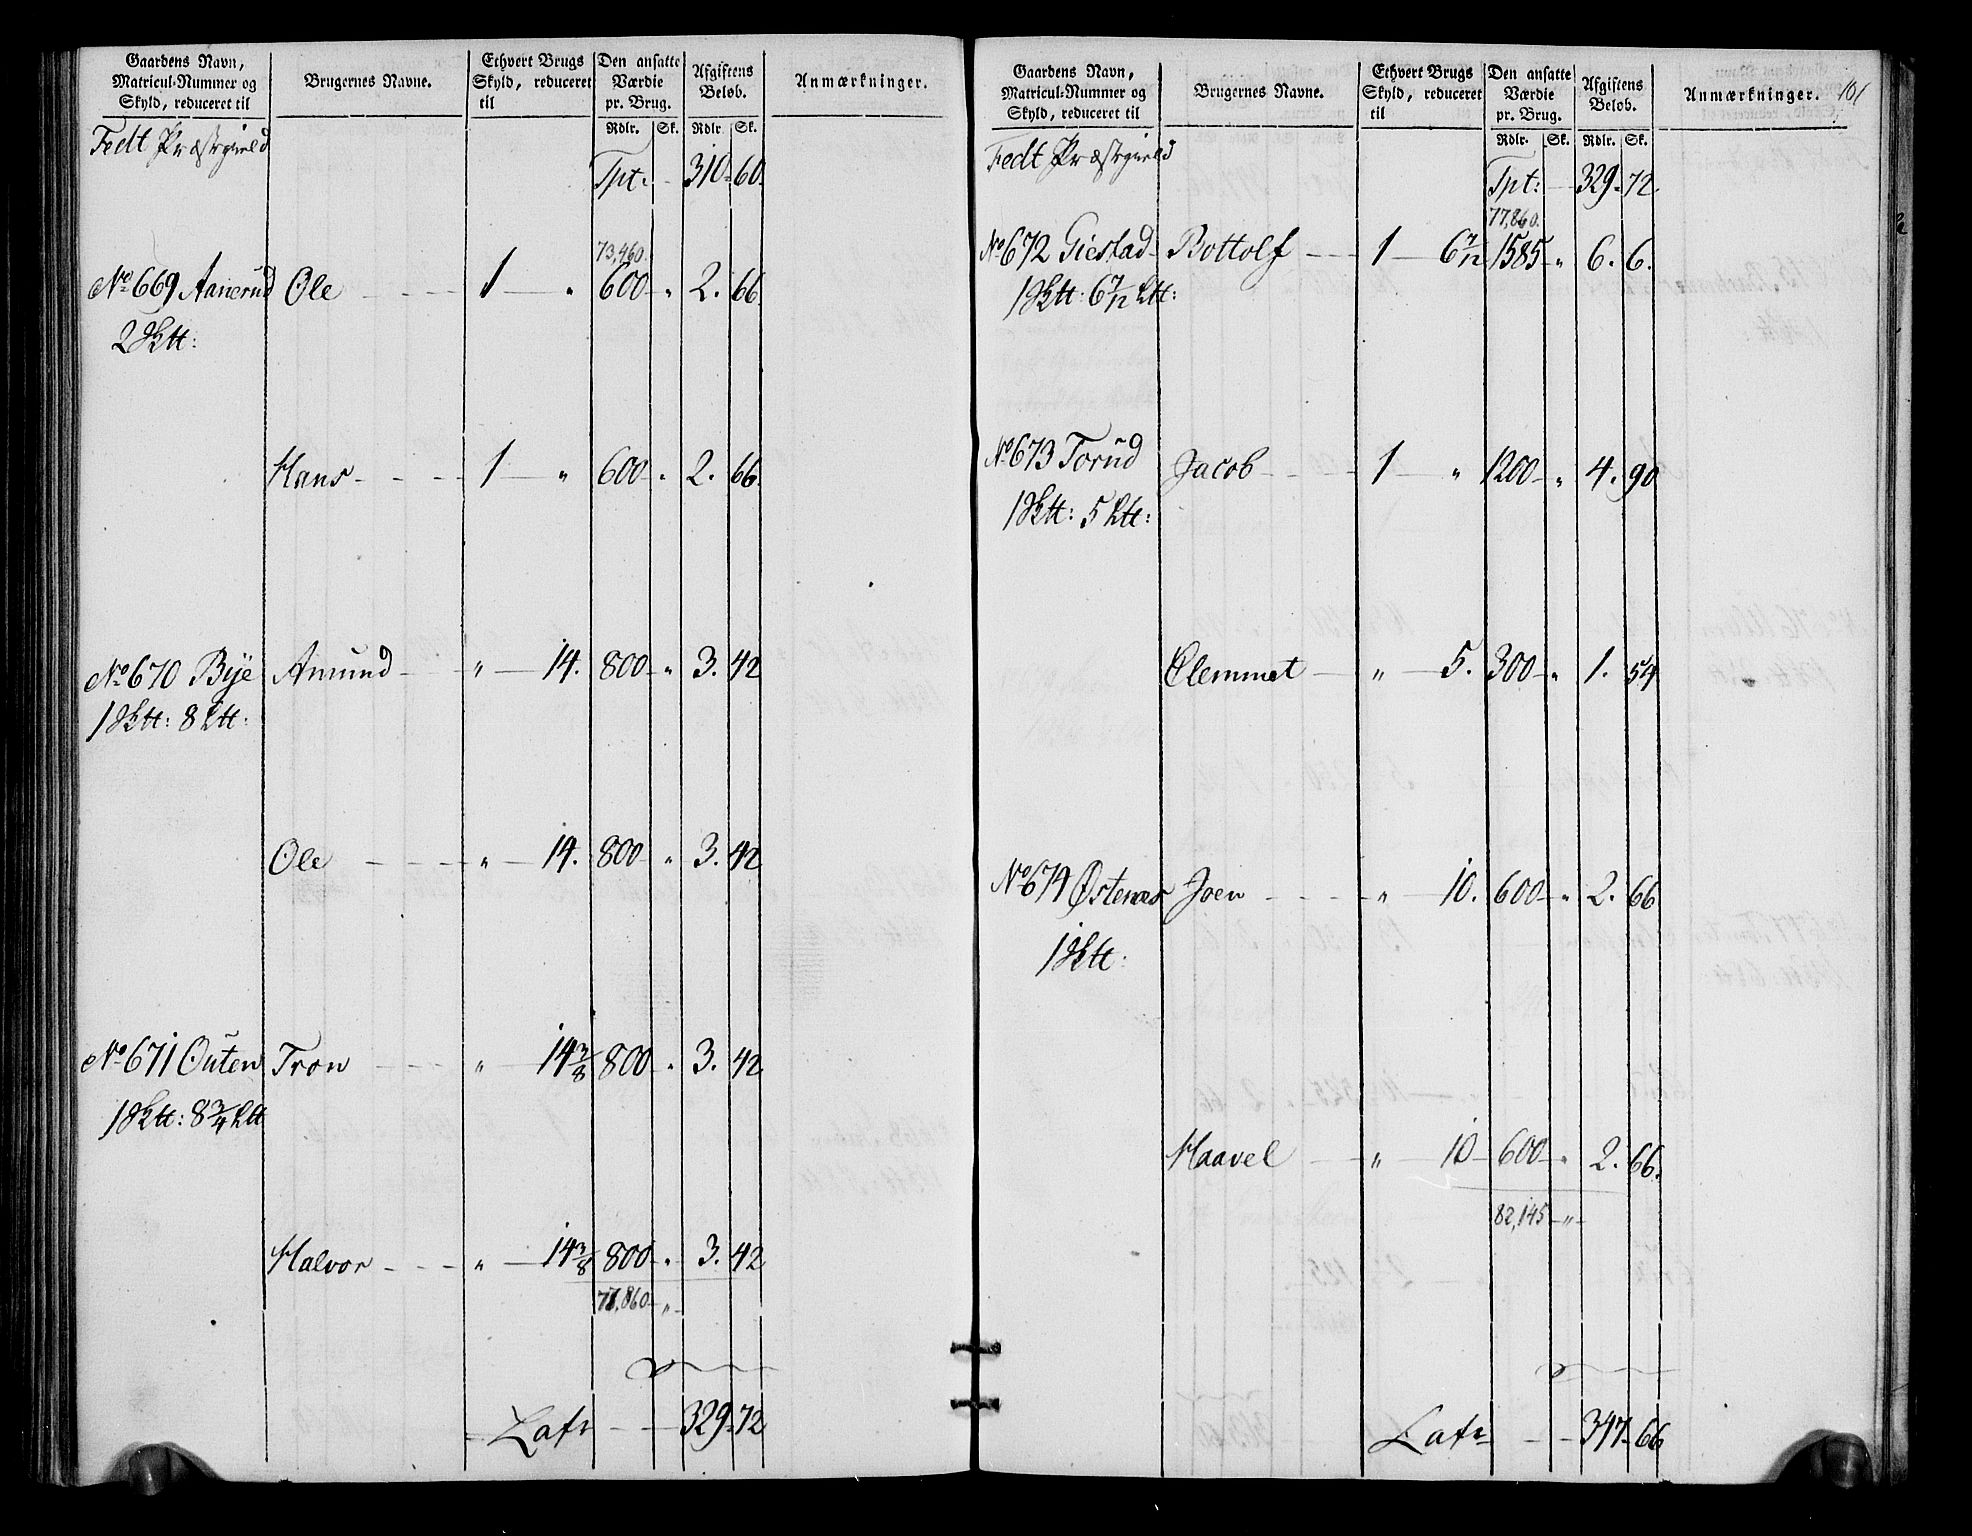 Gaardens Navn,
Matricul-Nummer og
Skyld, reduceret til
Brugernes Navne.
Ethvert Brugs
Skyld, reduceret
til
Den ansatte
Værdie
pr. Brug.
Rdlr. Sk.
Afgiftens
Beløb.
Rdlr. Sk.
Anmærkninger.
Fedt Præstegield
Tpt: 310. 60.
73,460.
No 669 Aanerud Ole 1 " 600 " 2. 66.
2 Sktt:
Hans 1 " 600 " 2. 66.
No 670 Bye Amund " 14. 800 " 3. 42
1 Sktt: 8 Ltt:
Ole " 14. 800 " 3. 42
No 671 Outen Tron " 14 3/8 800 " 3. 42
1 Sktt: 8 3/4 Ltt
Halvor " 14 3/8 800 " 3. 42
77,860 "
Latr 329. 72
Gaardens Navn,
Matricul-Nummer og
Skyld, reduceret til
Brugernes Navne.
Ethvert Brugs
Skyld, reduceret
til
Den ansatte
Værdie
pr. Brug.
Rdlr. Sk.
Afgiftens
Beløb.
Rdlr. Sk.
Anmærkninger.
101
Fedt Præstegield
Tpt: 329. 72.
77,860.
No 672 Giestad Bottolf 1 6 7/12 1585 " 6. 6.
1 Sktt: 6 7/12 Ltt:
No 673 Torud Jacob 1 " 1200 " 4. 90
1 Sktt: 5 Ltt:
Clemmet " 5. 300 " 1. 54
No 674 Østenæs Joen " 10. 600 " 2. 66
1 Sktt:
Haavel " 10 600 " 2. 66.
82,145 "
Latr 347. 66